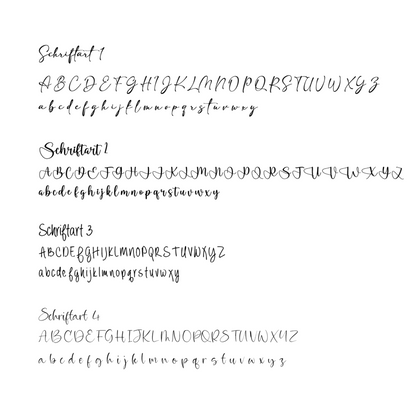 Schriftart 1
ABCDEFGHIJKLMNOPQRSTUVWXYZ
abcdefghijklmnopqrstuvwxy
Schriftart 2
ABCDEFGHIJKLMNOPQRSTUVWXYZ
abcdefghijklmnopqrstuvwxy
Schriftart 3
ABCDEFGHIJKLMNOPQRSTUVWXYZ
abcdefghijklmnopqrstuvwxy
Schriftart 4
ABCDEFGHIJKLMNOPQRSTUVWXYZ
abcdefghijklmnopqrstuvwxyz